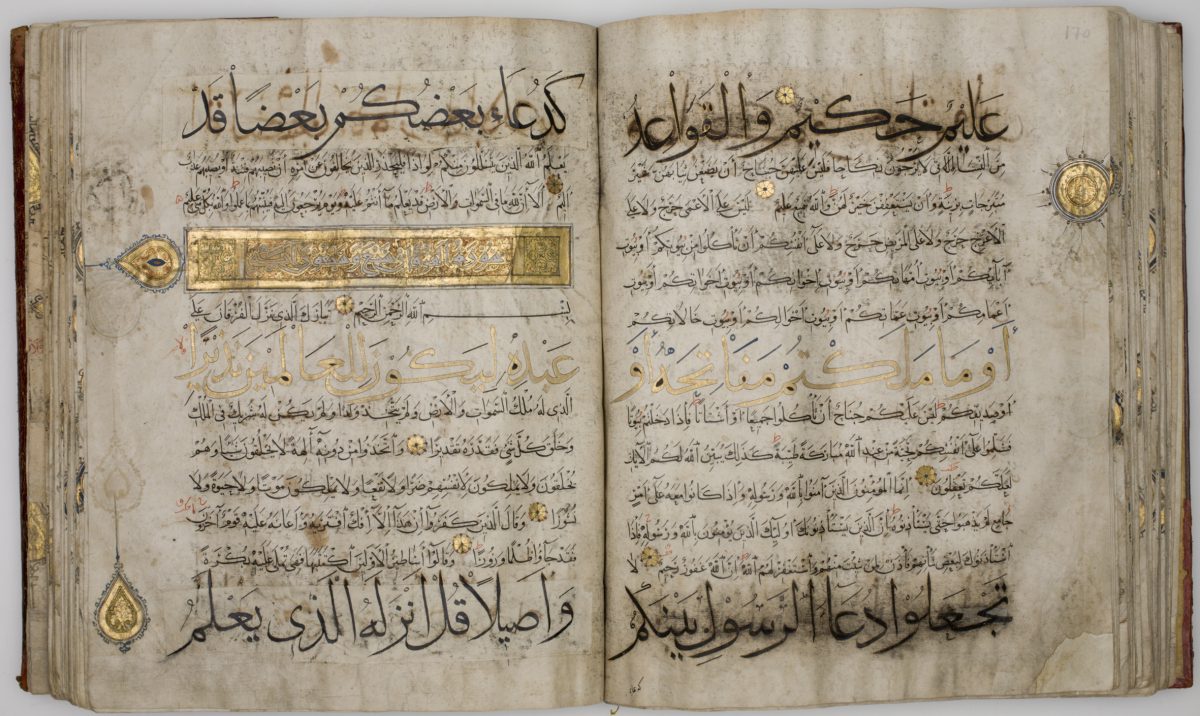 170
عليم حكيم والقواعد
من النساء اللاتي لا يرجون نكاحا فليس عليهن جناح أن يضعن ثيابهن غير
متبرجات بزينة وأن يستعففن خير لهن والله سميع عليم ليس على الأعمى حرج ولا على
الأعرج حرج ولا على المريض حرج ولا على أنفسكم أن تأكلوا من بيوتكم أو بيوت
آبائكم أو بيوت أمهاتكم أو بيوت إخوانكم أو بيوت أخواتكم أو بيوت
أعمامكم أو بيوت عماتكم أو بيوت أخوالكم أو بيوت خالاتكم
أو ما ملكتم مفاتحه أو
أو صديقكم ليس عليكم جناح أن تأكلوا جميعا أو أشتاتا فإذا دخلتم بيوتا
فسلموا على أنفسكم تحية من عند الله مباركة طيبة كذلك يبين الله لكم الآيات
لعلكم تعقلون إنما المؤمنون الذين آمنوا بالله ورسوله وإذا كانوا معه على أمر
جامع لم يذهبوا حتى يستأذنوه إن الذين يستأذنونك أولئك الذين يؤمنون بالله ورسوله فإذا
استأذنوك لبعض شأنهم فأذن لمن شئت منهم واستغفر لهم الله إن الله غفور رحيم لا
تجعلوا دعاء الرسول بينكم
كدعاء
كدعاء بعضكم بعضا قد
يعلم الله الذين يتسللون منكم لواذا فليحذر الذين يخالفون عن أمره أن تصيبهم فتنة أو يصيبهم عذاب
أليم ألا إن لله ما في السموات والأرض قد يعلم ما أنتم عليه ويوم يرجعون إليه فينبئهم بما عملوا والله بكل شيء عليم
سورة الفرقان سبع وسبعون آية
بسم الله الرحمن الرحيم تبارك الذي نزل الفرقان على
عبده ليكون للعالمين نذيرا
الذي له ملك السموات والأرض ولم يتخذ ولدا ولم يكن له شريك في الملك
وخلق كل شيء فقدره تقديرا واتخذوا من دونه آلهة لا يخلقون شيئا وهم
يخلقون ولا يملكون لأنفسهم ضرا ولا نفعا ولا يملكون موتا ولا حيوة ولا
نشورا وقال الذين كفروا إن هذا إلا إفك افتريه وأعانه عليه قوم آخرون
فقد جاؤا ظلما وزورا وقالوا أساطير الأولين اكتتبها فهي تملى عليه بكرة
وأصيلا قل أنزله الذي يعلم